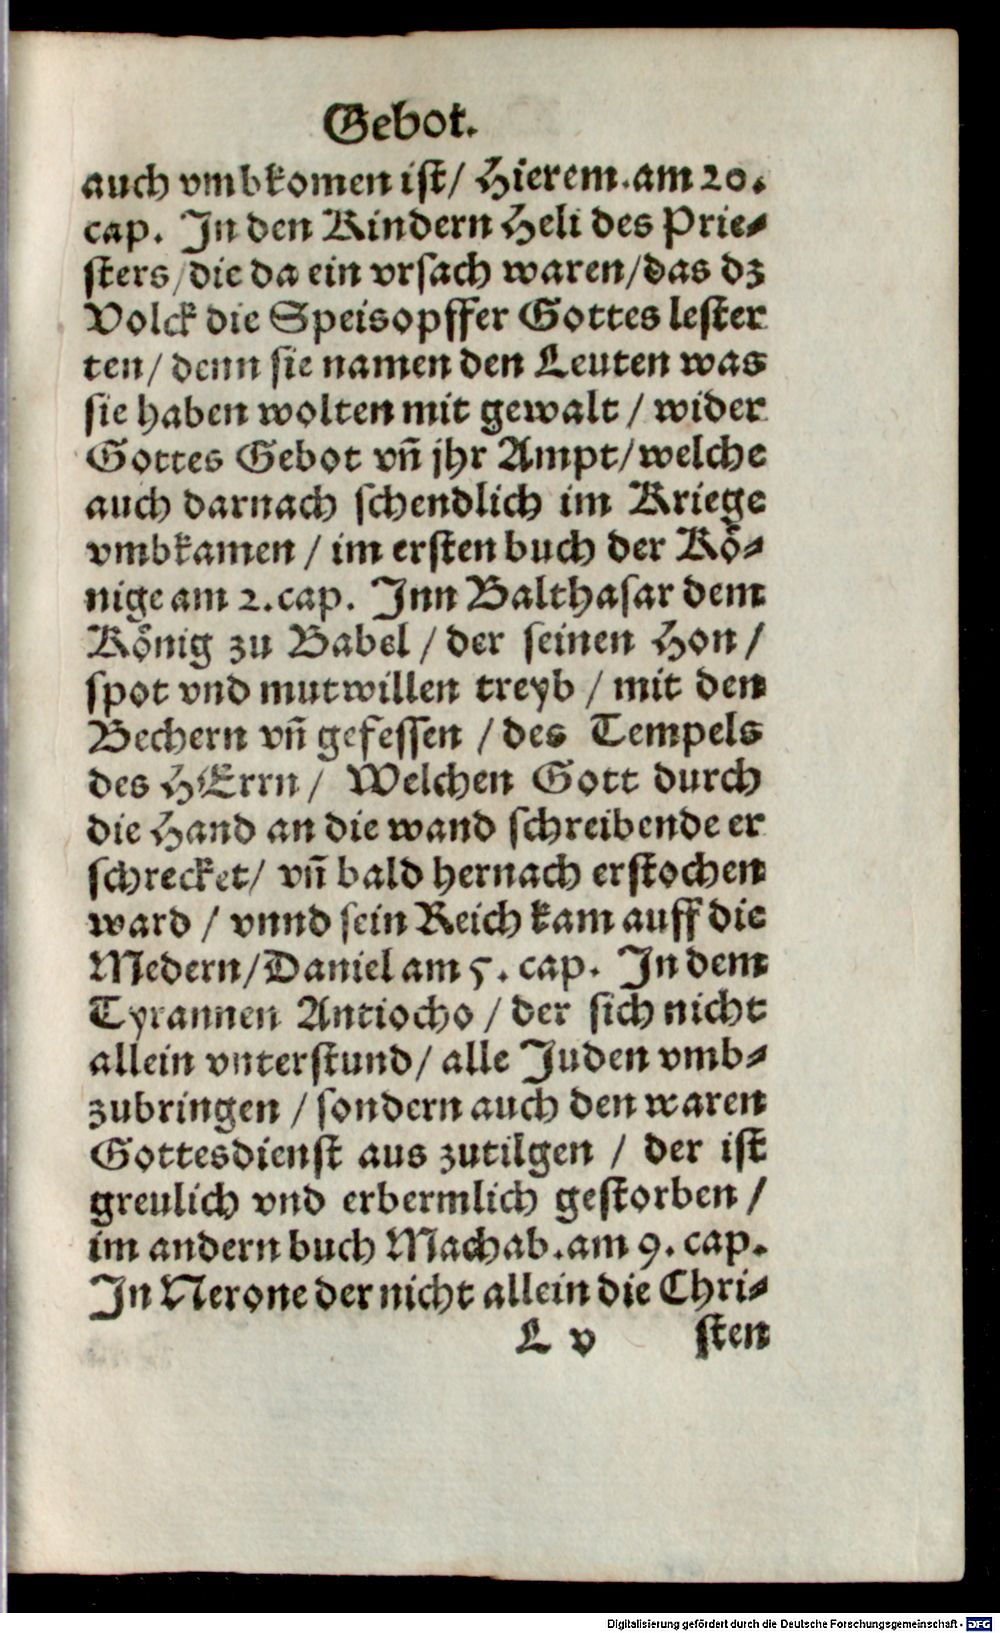 Gebot.
auch vmbkomen ist/ Hierem.am 20.
cap. In den Kindern Heli des Prie-
sters/die da ein vrsach waren/das dz
Volck die Speisopffer Gottes lester
ten/ denn sie namen den Leuten was
sie haben wolten mit gewalt / wider
Gottes Gebot vñ jhr Ampt/welche
auch darnach schendlich im Kriege
vmbkamen / im ersten buch der Kö-
nige am 2.cap. Inn Balthasar dem
König zu Babel / der seinen Hon /
spot vnd mutwillen treyb / mit den
Bechern vñ gefessen / des Tempels
des HErrn / Welchen Gott durch
die Hand an die wand schreibende er
schrecket/ vñ bald hernach erstochen
ward / vnnd sein Reich kam auff die
Medern/Daniel am 5. cap. In dem
Tyrannen Antiocho / der sich nicht
allein vnterstund/ alle Juden vmb-
zubringen / sondern auch den waren
Gottesdienst aus zutilgen / der ist
greulich vnd erbermlich gestorben /
im andern buch Machab.am 9. cap.
In Nerone der nicht allein die Chri-
L v sten
Digitalisierung gefördert durch die Deutsche Forschungsgemeinschaft - DFG